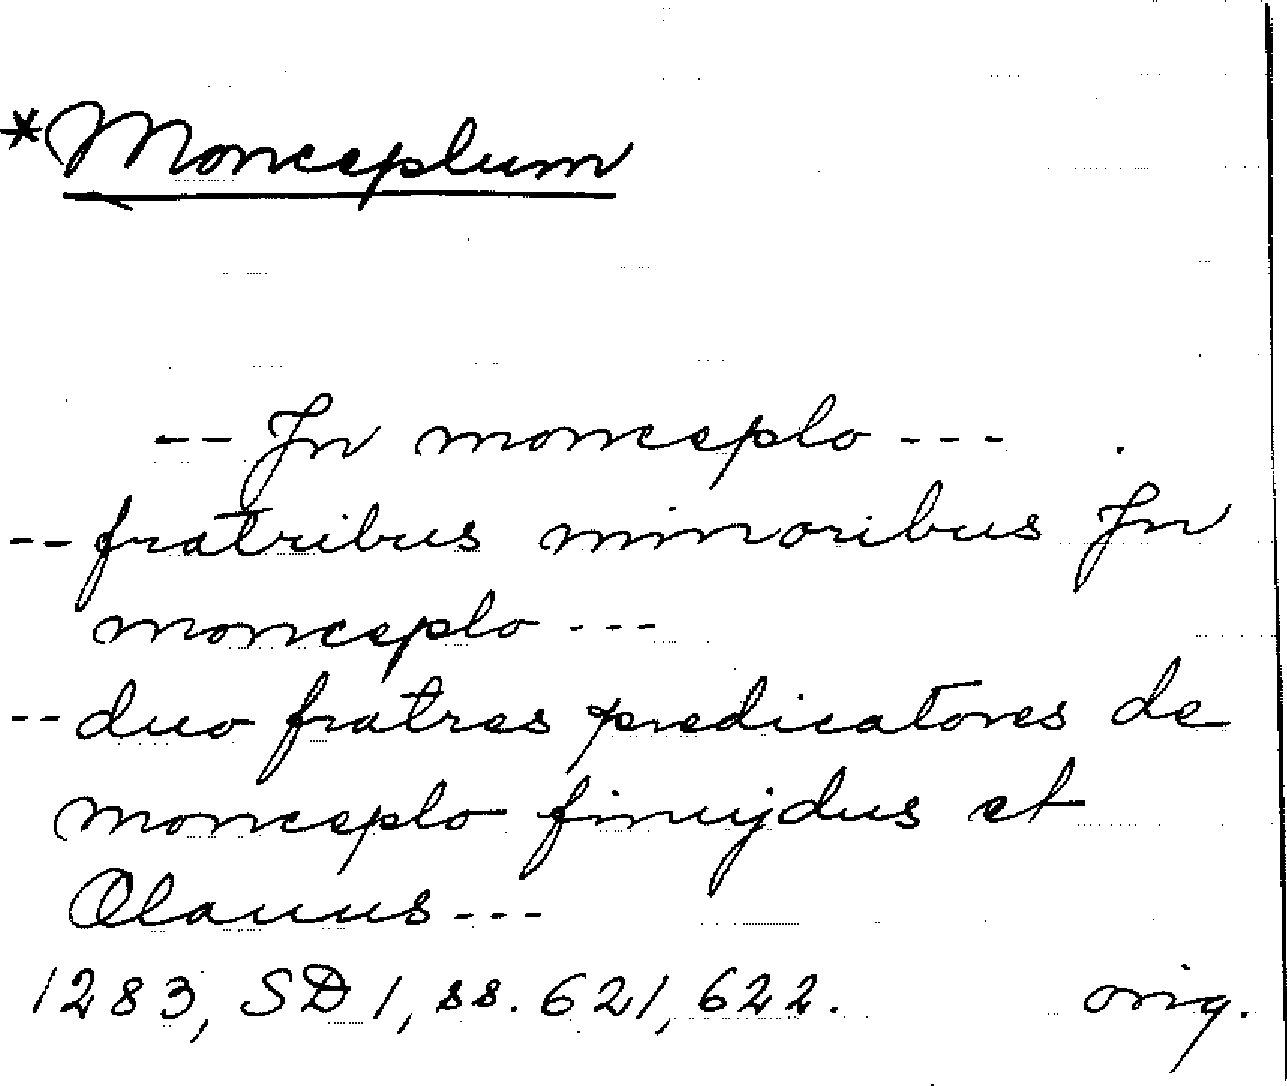 *Monceplum
-- Jn monceplo ---
-- fratribus minoribus Jn
monceplo ---
-- duo fratres predicatores de
monceplo finuijdus et
Olauus ---
1283, SD 1, ss. 621, 622. orig.